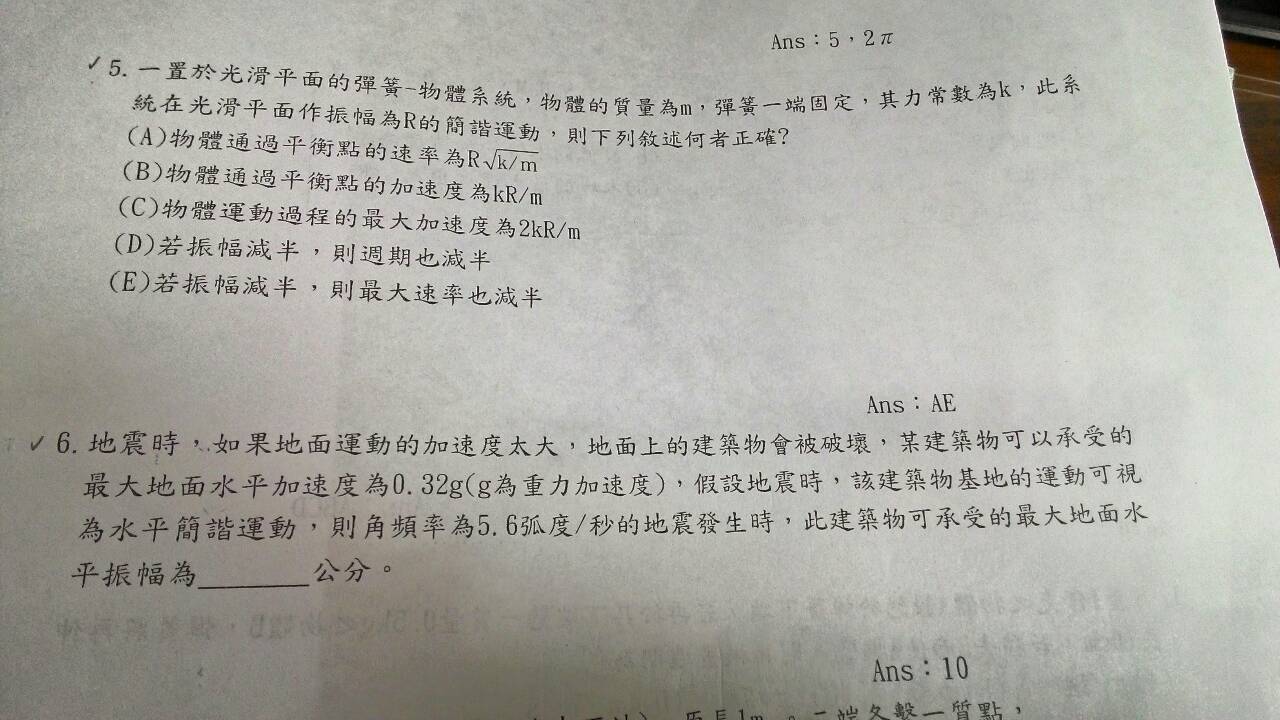 Ans：5，2π
✓ 5. 一置於光滑平面的彈簧-物體系統，物體的質量為m，彈簧一端固定，其力常數為k，此系
統在光滑平面作振幅為R的簡諧運動，則下列敘述何者正確?
(A)物體通過平衡點的速率為R√k/m
(B)物體通過平衡點的加速度為kR/m
(C)物體運動過程的最大加速度為2kR/m
(D)若振幅減半，則週期也減半
(E)若振幅減半，則最大速率也減半
Ans：AE
✓ 6. 地震時，如果地面運動的加速度太大，地面上的建築物會被破壞，某建築物可以承受的
最大地面水平加速度為0.32g(g為重力加速度)，假設地震時，該建築物基地的運動可視
為水平簡諧運動，則角頻率為5.6弧度/秒的地震發生時，此建築物可承受的最大地面水
平振幅為________公分。
Ans：10
原長1m。二端各繫一質點，